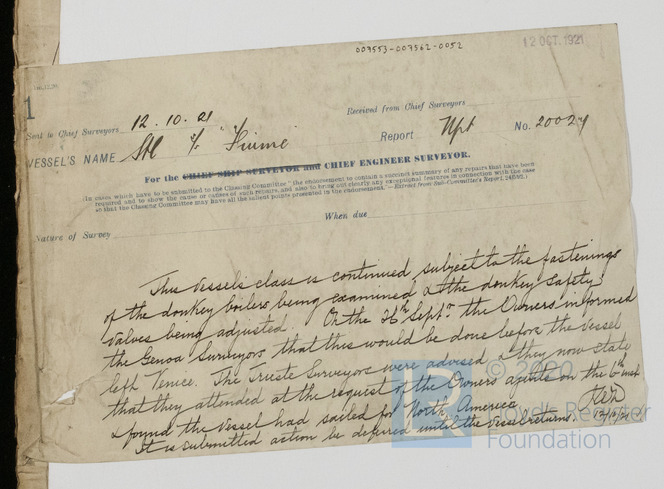 007553-007562-0052
12 OCT. 1921
1
Sent to Chief Surveyors 12.10.21
Received from Chief Surveyors
VESSEL'S NAME Stl "Fiume"
Report Npt No. 20029
For the CHIEF SHIP SURVEYOR and CHIEF ENGINEER SURVEYOR.
(In cases which have to be submitted to the Classing Committee "the endorsement to contain a succinct summary of any repairs that have been
required and to show the cause or causes of such repairs, and also to bring out clearly any exceptional features in connection with the case
so that the Classing Committee may have all the salient points presented in the endorsement."—Extract from Sub-Committee's Report,
Nature of Survey
When due
This Vessel's class is continued subject to the fastenings
of the donkey boilers being examined & the donkey safety
valves being adjusted. On the 26th Septr. the Owners informed
the Genoa Surveyors that this would be done before the Vessel
left Venice. The Trieste Surveyors were advised & they now state
that they attended at the request of the Owners' agents on the 6th inst
& found the Vessel had sailed for North America
It is submitted action be deferred until the Vessel returns.
12/10/21
© 2020
Lloyd's Register
Foundation